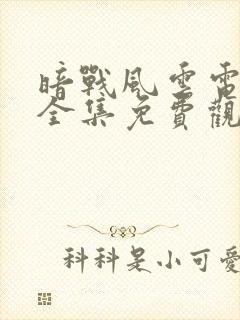 暗戰風雲電
全集免費觀
科科是小可愛